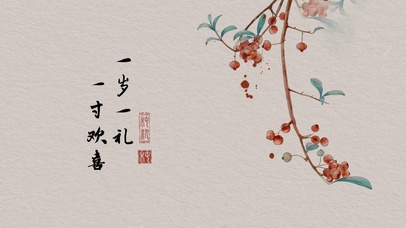 一岁一礼
一寸欢喜